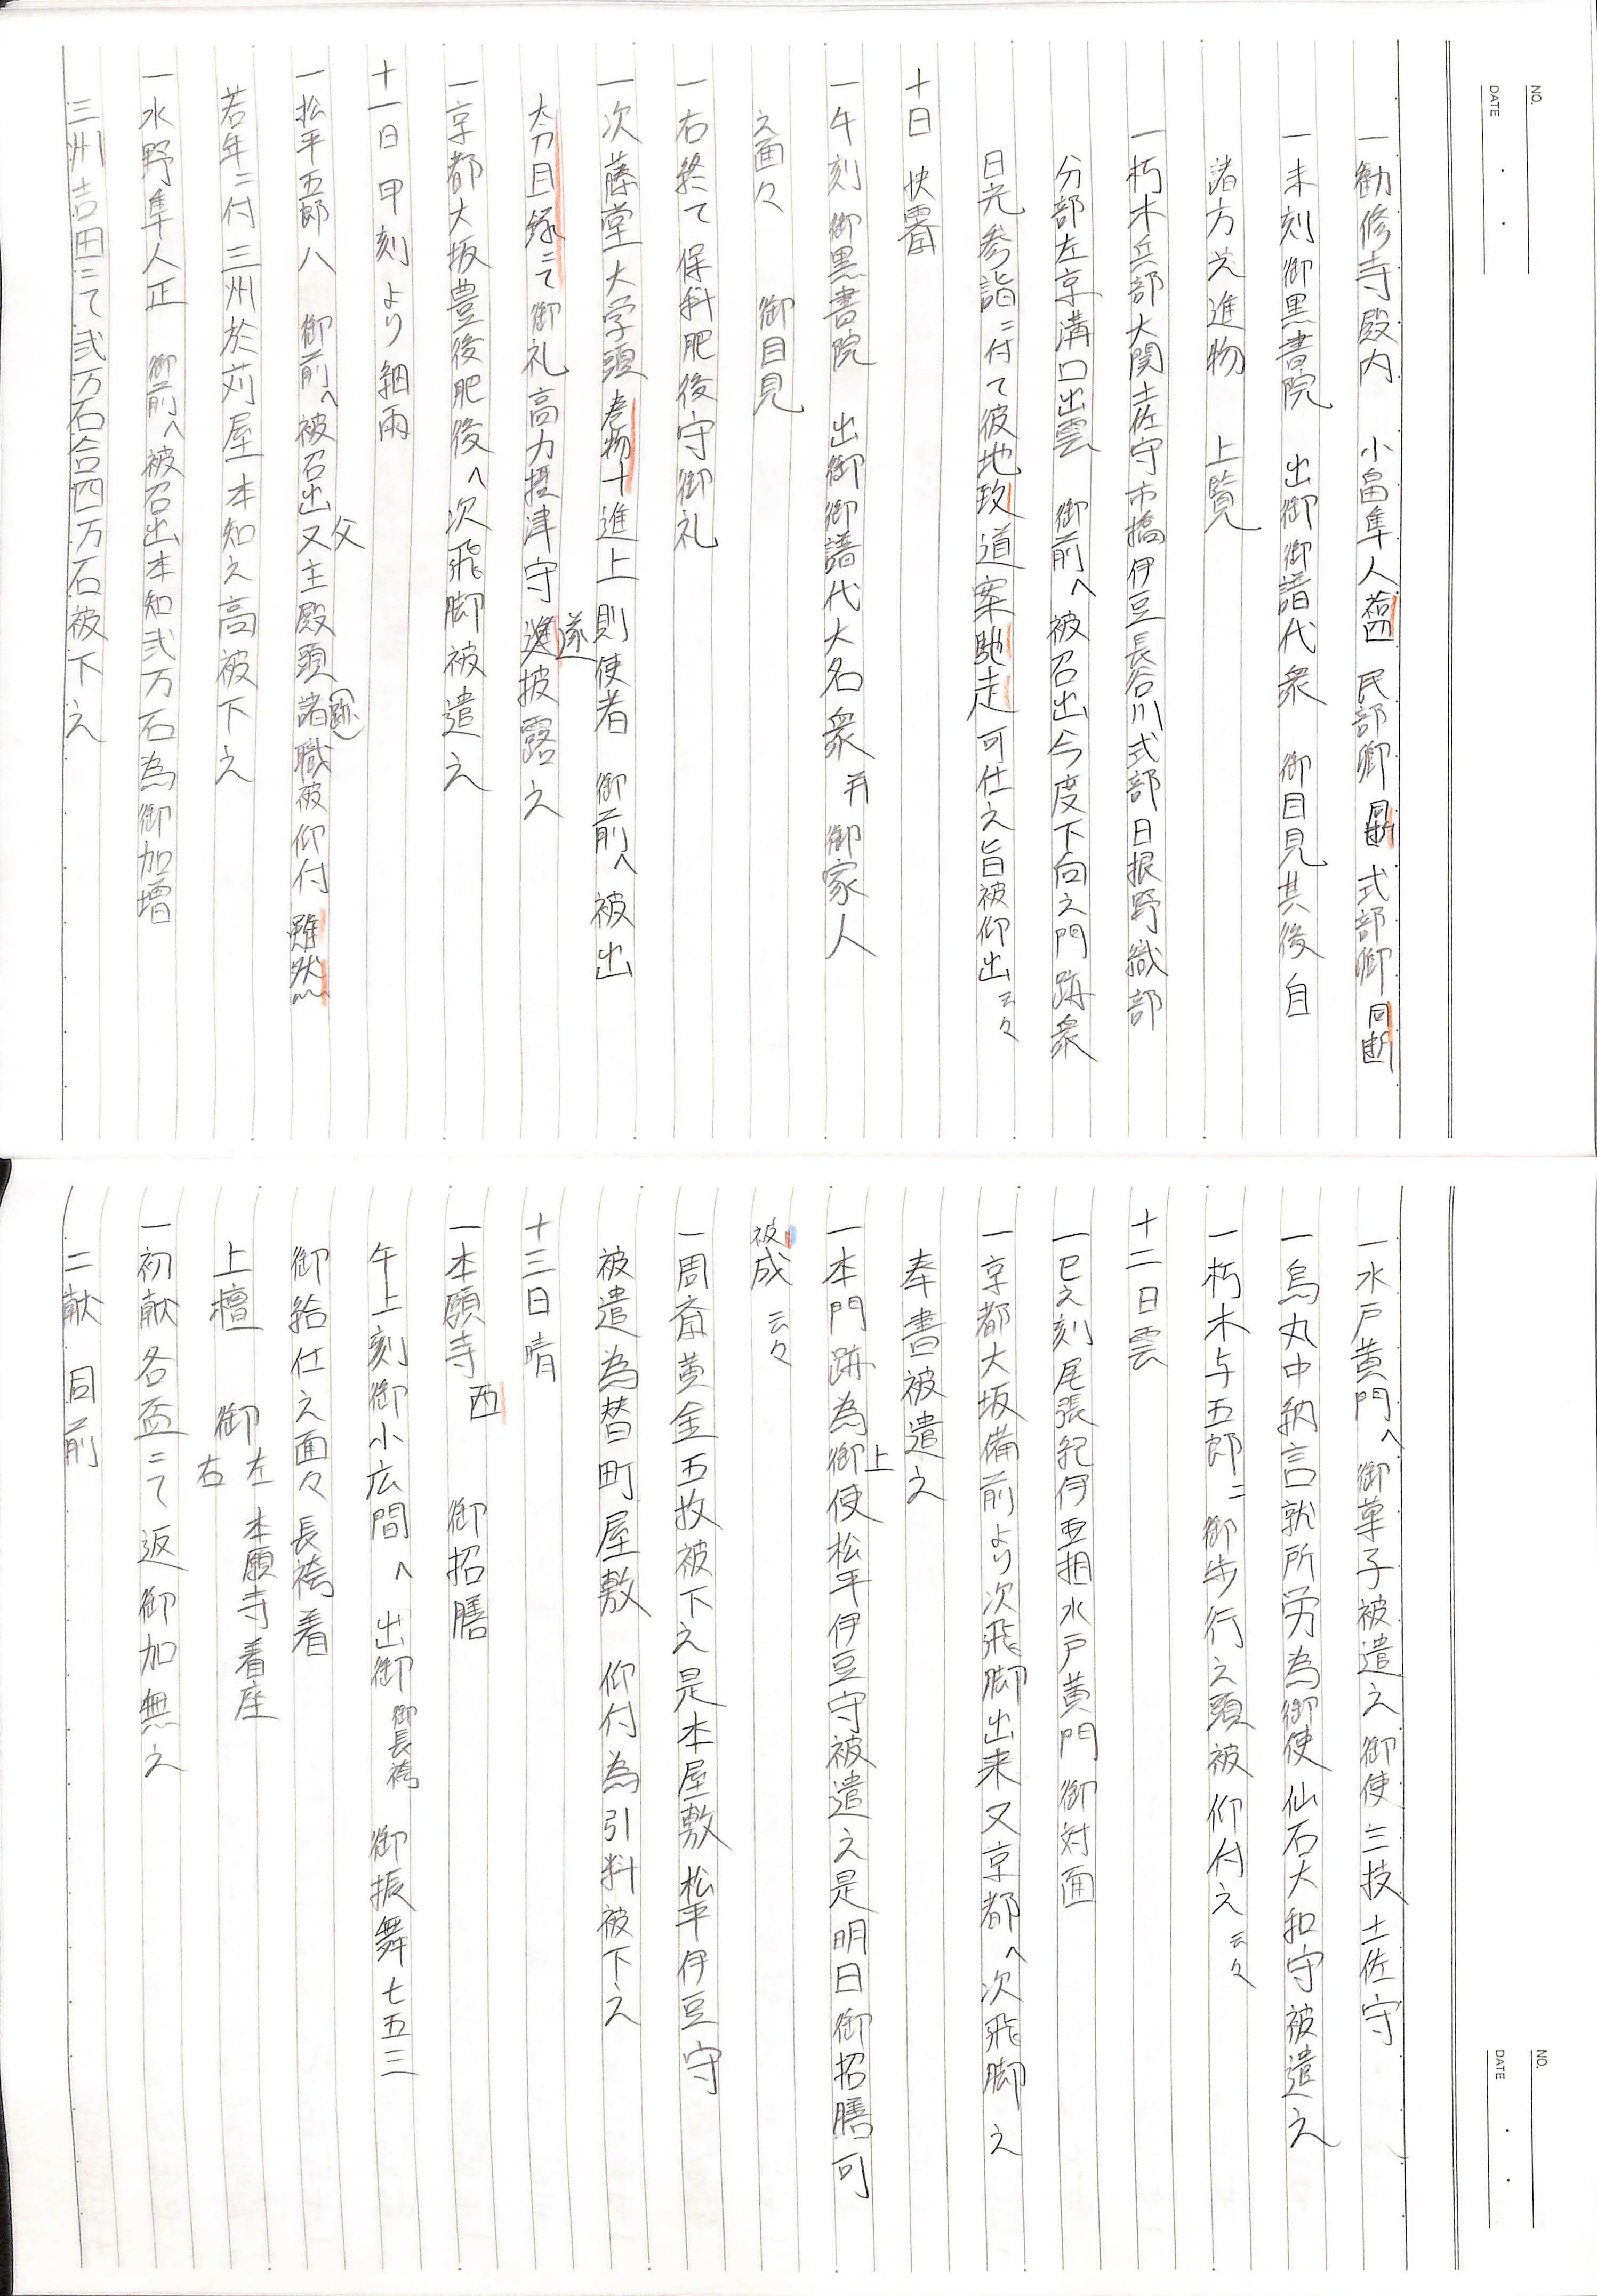 NO.
DATE
一勧修寺殿内　小畠隼人 民部卿 同断 式部卿 同断
一未刻御黒書院　出御御譜代衆　御目見其後自
諸方之進物　上覧
一朽木兵部大関土佐守市橋伊豆長谷川式部日根野織部
分部左京溝口出雲　御前へ被召出今度下向之門跡衆
日光参詣ニ付て彼地 道案馳走可仕之旨被仰出云々
十日　快霽
一午刻　御黒書院　出御御譜代大名衆并御家人
之面々　御目見
一右終て保科肥後守御礼
一次藤堂大学頭 巻物十進上則使者　御前へ被出
太刀目録ニて御礼高力摂津守進遂披露之
一京都大坂豊後肥後へ次飛脚被遣之
十一日　甲刻より細雨
一松平五郎八　御前へ被召出又父主殿頭諸(跡)職被仰付　雖然
若年ニ付三州於苅屋本知之高被下之
一水野隼人正　御前へ被召出本知弐万石為御加増
三州吉田ニて弐万石合四万石被下之
NO.
DATE
一水戸黄門へ御菓子被遣之御使三枝土佐守
一烏丸中納言就所労為御使仙石大和守被遣之
一朽木与五郎ニ御歩行之頭被仰付之云々
十二日雲
一巳之刻尾張紀伊亜相水戸黄門　御対面
一京都大坂備前より次飛脚出来又京都へ次飛脚之
奉書被遣之
一本門跡為御上使松平伊豆守被遣之是明日御招膳可
被成　云々
一周斎黄金五枚被下之是本屋敷松平伊豆守
被遣為替町屋敷　仰付為引料被下之
十三日晴
一本願寺　西　御招膳
午上刻御小広間へ　出御　御長袴　御振舞七五三
御給仕之面々長袴着
上檀　御　左　右　本願寺着座
一初献各盃ニて返御加無之
二献　同前